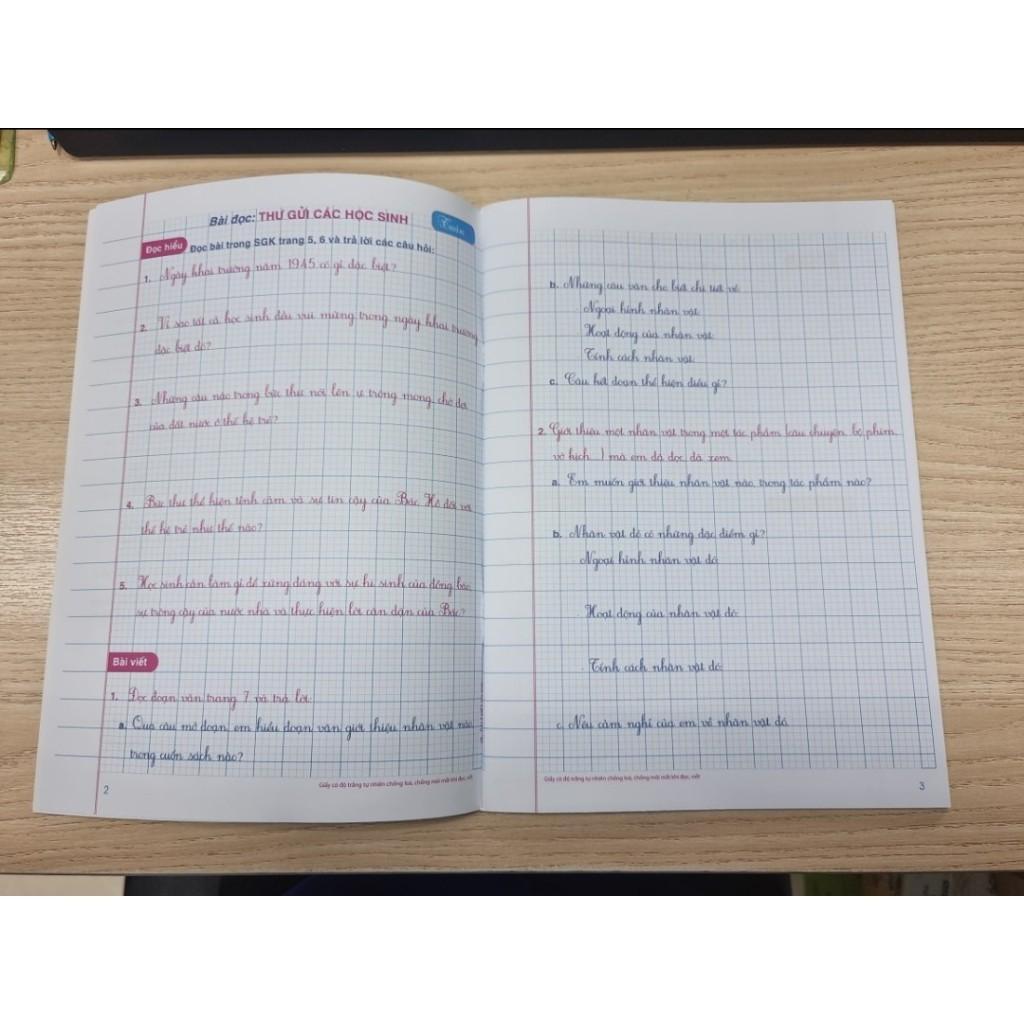 Bài đọc: THƯ GỬI CÁC HỌC SINH
Tuần
Đọc hiểu Đọc bài trong SGK trang 5, 6 và trả lời các câu hỏi:
1. Ngày khai trường năm 1945 có gì đặc biệt?
2. Vì sao tất cả học sinh đều vui mừng trong ngày khai trường
đặc biệt đó?
3. Những câu nào trong bức thư nói lên sự trông mong, chờ đợi
của đất nước ở thế hệ trẻ?
4. Bức thư thể hiện tình cảm và sự tin cậy của Bác Hồ đối với
thế hệ trẻ như thế nào?
5. Học sinh cần làm gì để xứng đáng với sự hi sinh của đồng bào,
sự trông cậy của nước nhà và thực hiện lời căn dặn của Bác?
Bài viết
1. Đọc đoạn văn trang 7 và trả lời:
a. Qua câu mở đoạn, em hiểu đoạn văn giới thiệu nhân vật nào,
trong cuốn sách nào?
2
Giấy có độ trắng tự nhiên chống loá, chống mỏi mắt khi đọc, viết
b. Những câu văn cho biết chi tiết về:
Ngoại hình nhân vật:
Hoạt động của nhân vật:
Tính cách nhân vật:
c. Câu kết đoạn thể hiện điều gì?
2. Giới thiệu một nhân vật trong một tác phẩm (câu chuyện, bộ phim,
vở kịch...) mà em đã đọc, đã xem.
a. Em muốn giới thiệu nhân vật nào, trong tác phẩm nào?
b. Nhân vật đó có những đặc điểm gì?
Ngoại hình nhân vật đó:
Hoạt động của nhân vật đó:
Tính cách nhân vật đó:
c. Nêu cảm nghĩ của em về nhân vật đó.
Giấy có độ trắng tự nhiên chống loá, chống mỏi mắt khi đọc, viết
3